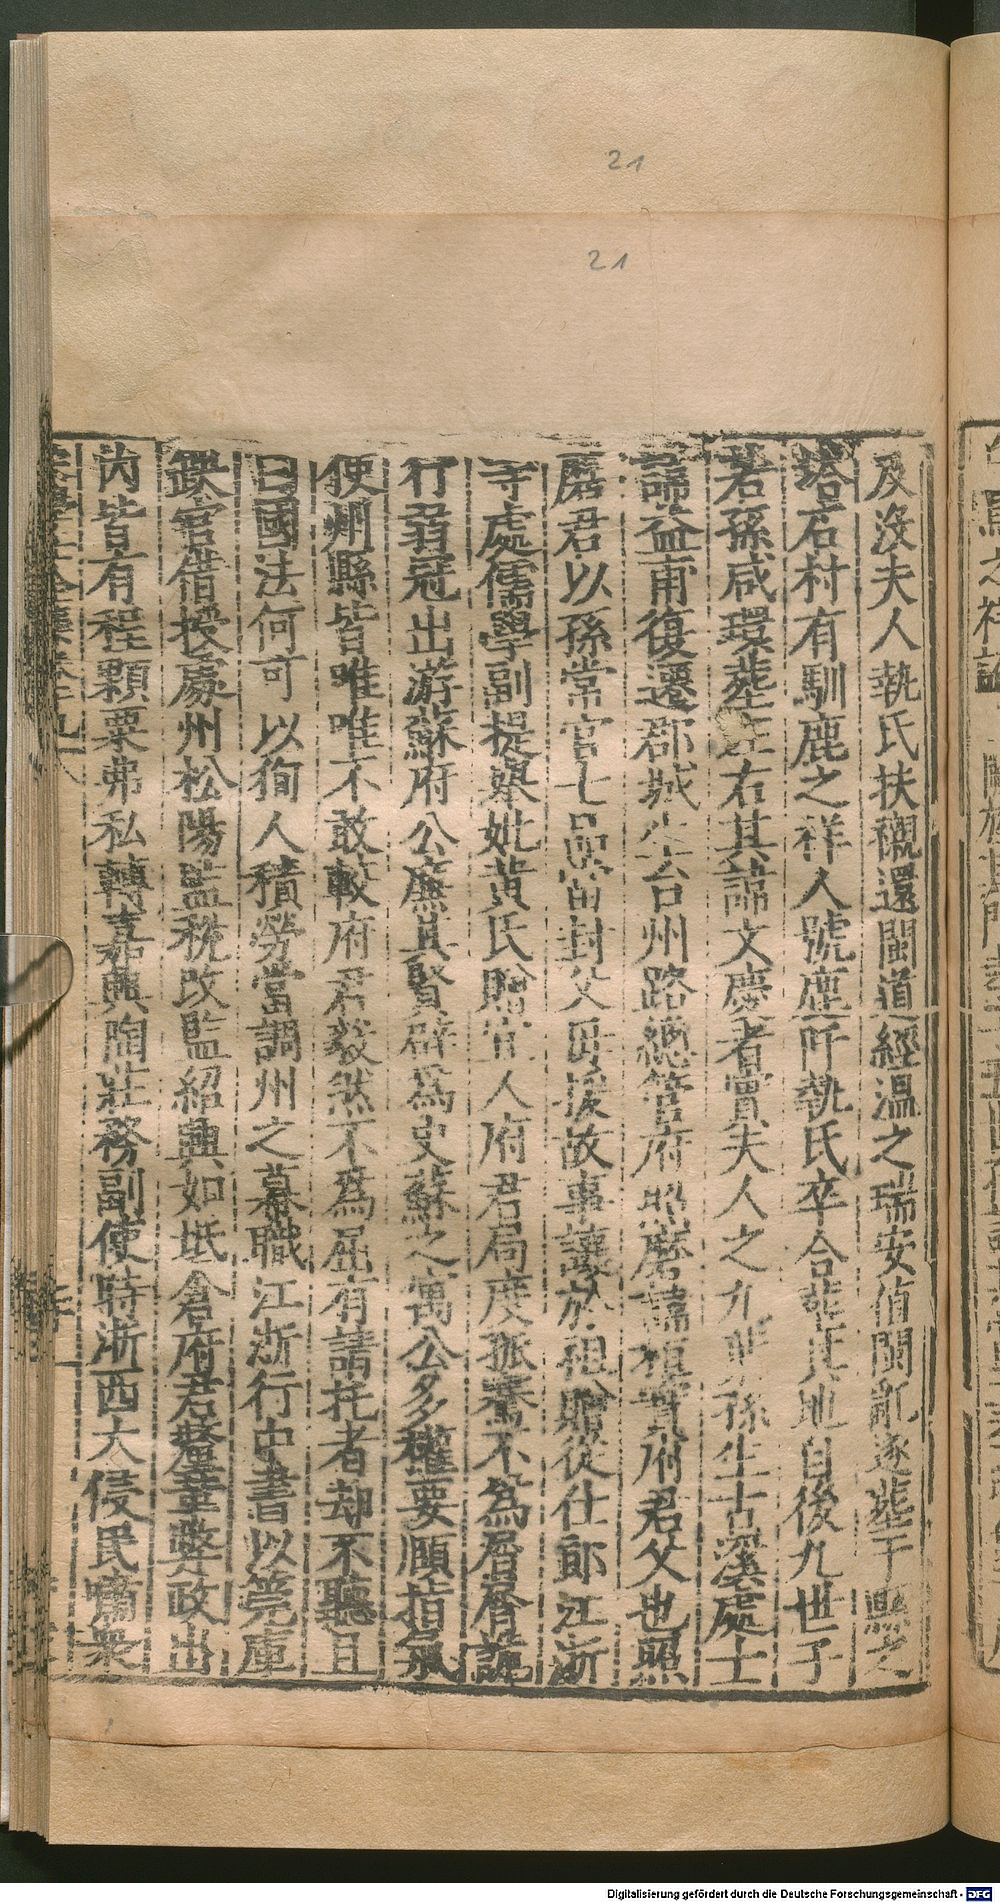 21
21
及沒夫人執氏扶櫬還閩道經溫之瑞安值閩亂遂塟于縣之
塔石村有馴鹿之祥人號鹿阡執氏卒合塟其地自後九世子
若孫咸環塟左右其諱文慶者實夫人之九世孫生古溪處士
諱益甫復遷郡城生台州路總管府照磨諱禎實府君父也照
磨君以孫常官七品當封父母援故事讓於祖贈從仕郎江浙
等處儒學副提舉妣黃氏贈宜人府君局度振騫不為屑屑謹
行弱冠出游蘇府公廉其賢辟為史蘇之寓公多權要頤指氣
使州縣皆唯唯不敢較府君毅然不為屈有請托者却不聽且
曰國法何可以徇人積勞當調州之幕職江浙行中書以筦庫
鈌官借授處州松陽監稅改監紹興如坻倉府君釐華弊政出
內皆有程顆粟弗私轉嘉興陶莊務副使時浙西大侵民嗷衆
Digitalisierung gefördert durch die Deutsche Forschungsgemeinschaft - DFG